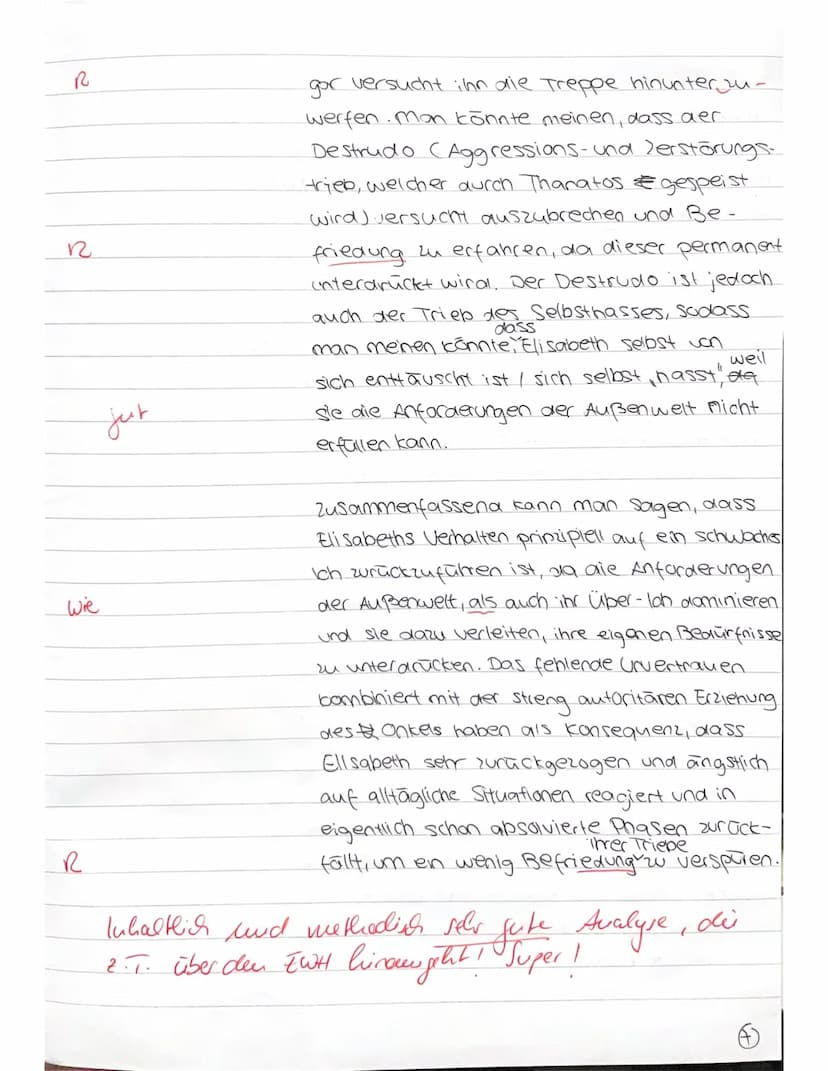 R
gar versucht ihn die Treppe hinunterzu-
werfen. Man könnte meinen, dass der
Destrudo (Aggressions- und Zerstörungs-
trieb, welcher durch Thanatos gespeist
wird) versucht auszubrechen und Be-
R
friedung zu erfahren, da dieser permanent
unterdrückt wird. Der Destrudo ist jedoch
auch der Trieb des Selbsthasses, sodass
man meinen könnte, dass Elisabeth selbst von
sich enttäuscht ist / sich selbst „hasst", weil
gut
sie die Anforderungen der Außenwelt nicht
erfüllen kann.
Zusammenfassend kann man sagen, dass
Elisabeths Verhalten prinzipiell auf ein schwaches
Ich zurückzuführen ist, da die Anforderungen
wie
der Außenwelt, als auch ihr Über-Ich dominieren
und sie dazu verleiten, ihre eigenen Bedürfnisse
zu unterdrücken. Das fehlende Urvertrauen
kombiniert mit der streng autoritären Erziehung
des Onkels haben als Konsequenz, dass
Elisabeth sehr zurückgezogen und ängstlich
auf alltägliche Situationen reagiert und in
eigentlich schon absolvierte Phasen zurück-
R
fällt, um ein wenig Befriedung ihrer Triebe zu verspüren.
Inhaltlich und methodisch sehr gute Analyse, die
z.T. über den EWH hinausgeht! Super!
7